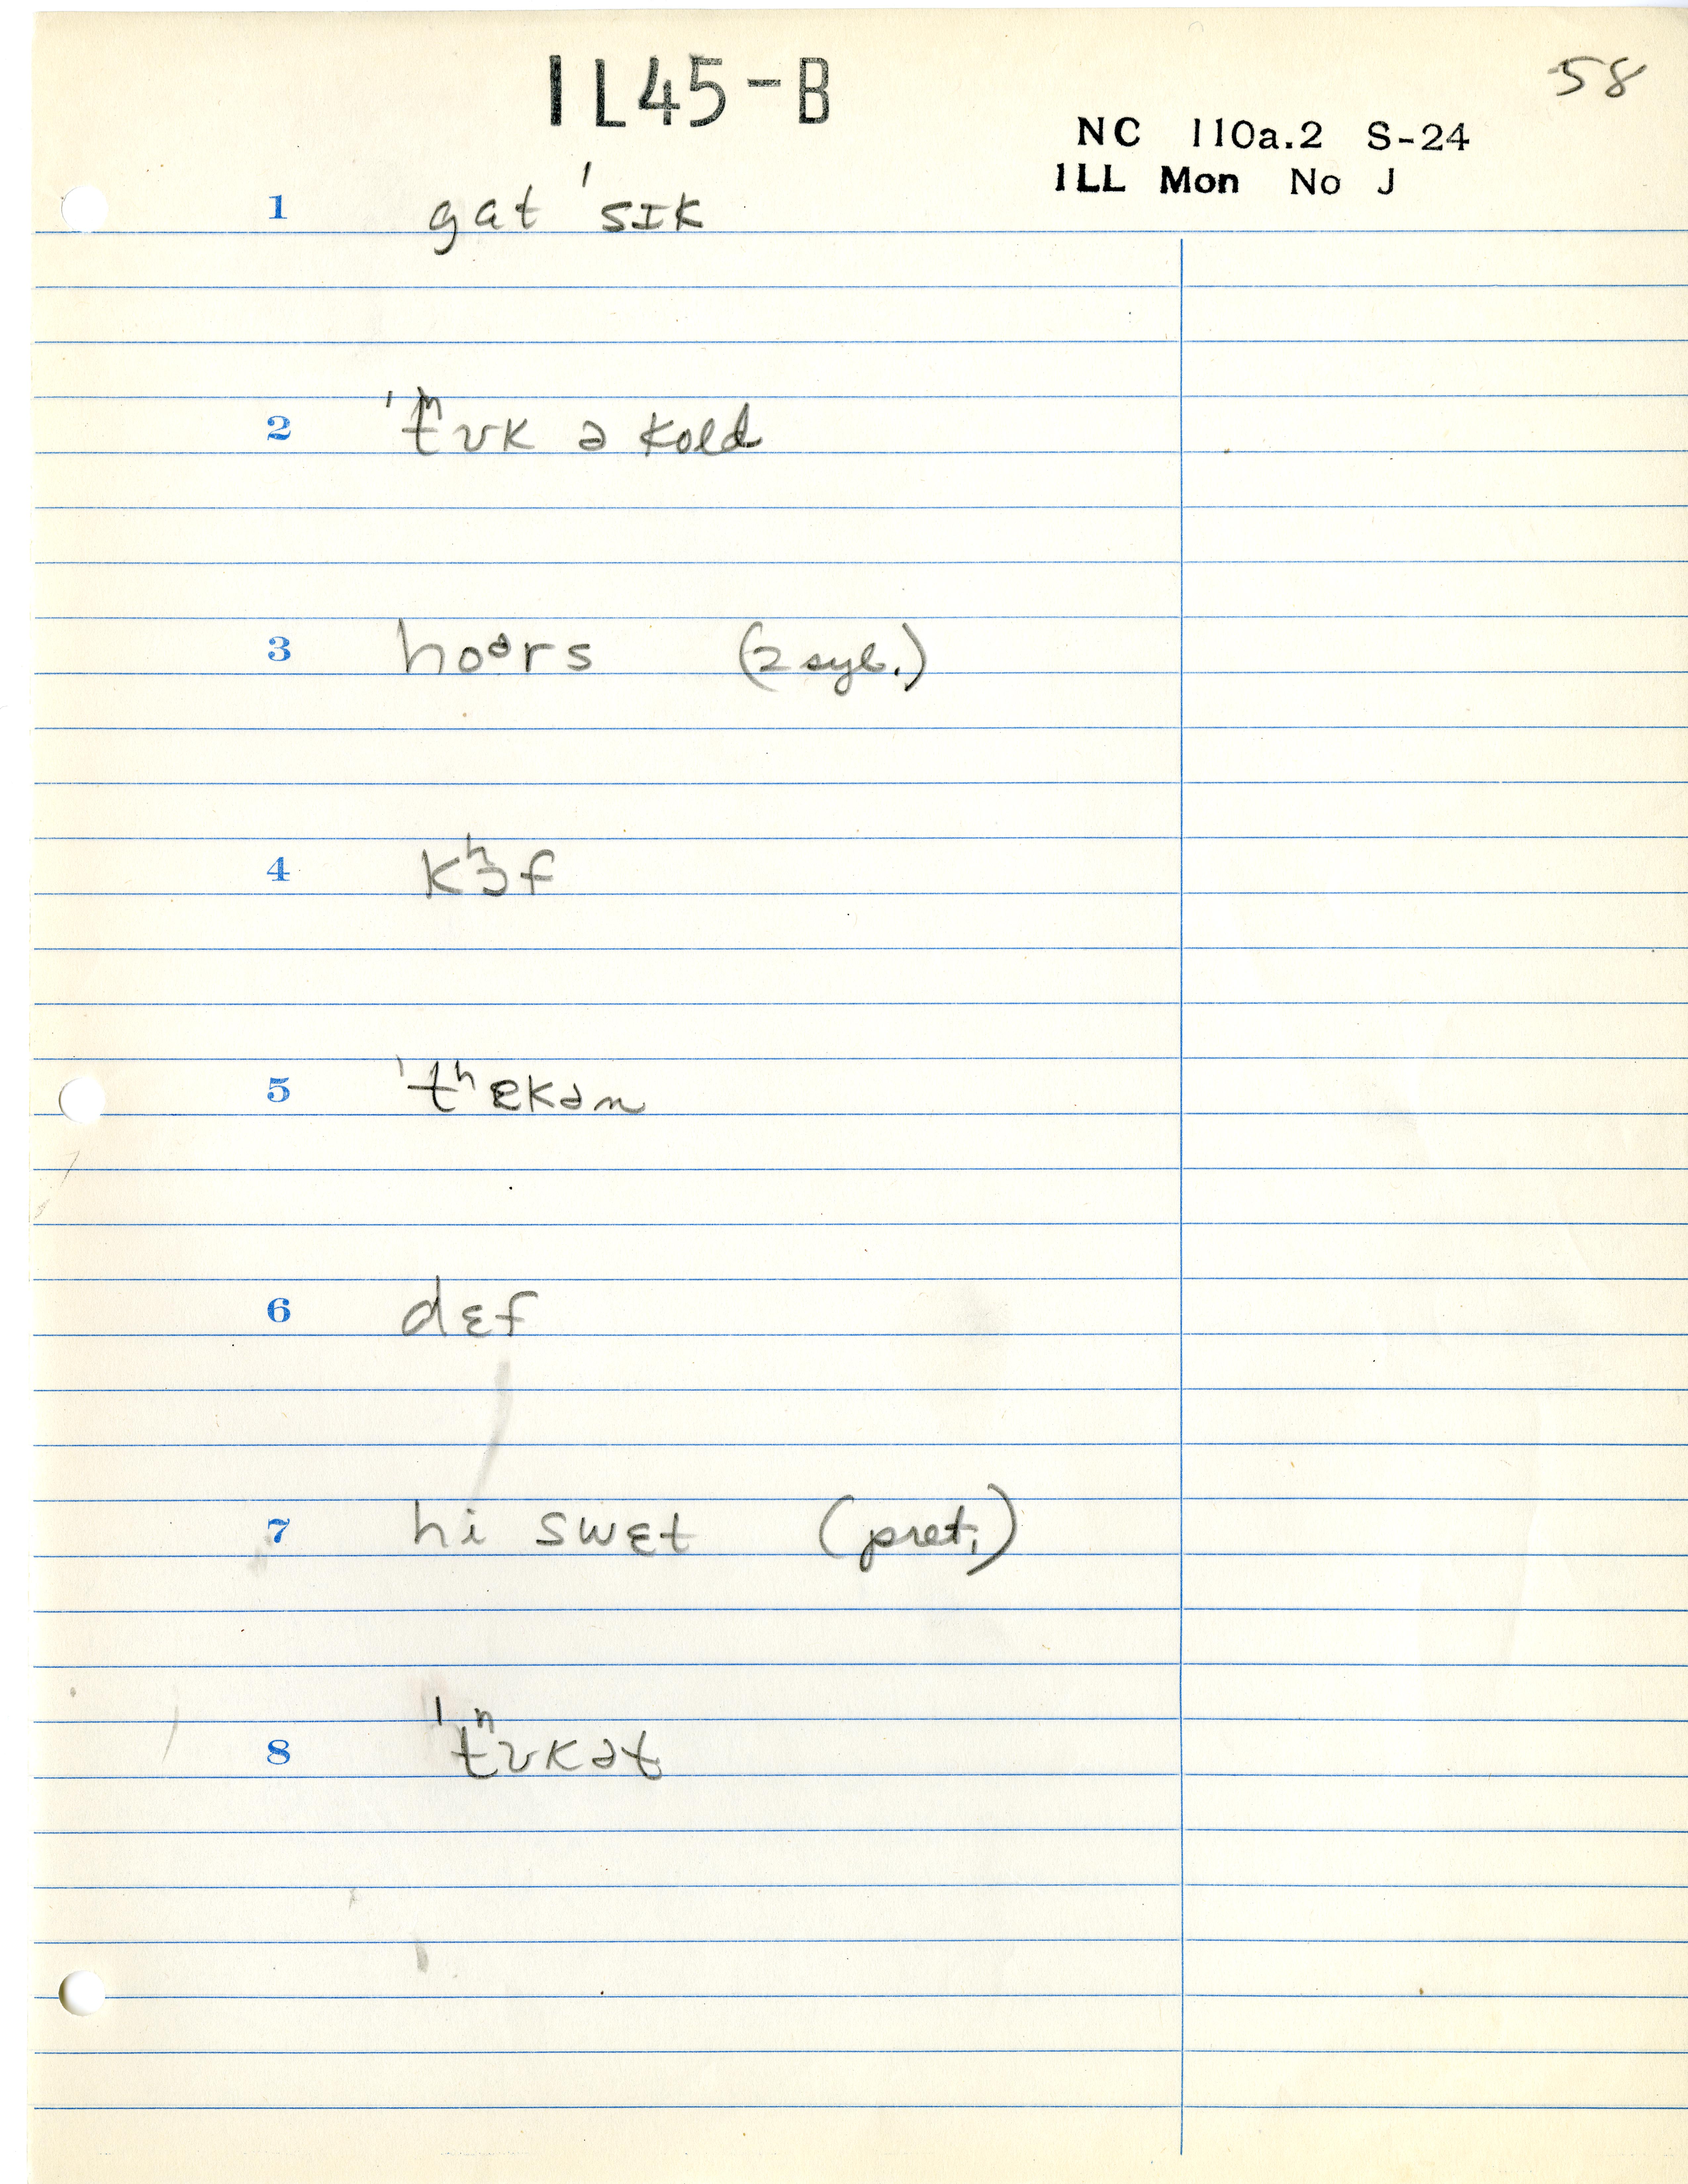 1L45-B
58
NC 110a.2 S-24
1LL Mon No J
1 gat ˈsɪk
2 ˈtʰʊk ə kold
3 hoᵊrs (2 syl.)
4 kʰɔf
5 ˈtʰekən
6 dɛf
7 hi swɛt (pret.)
8 ˈtʰʊkət